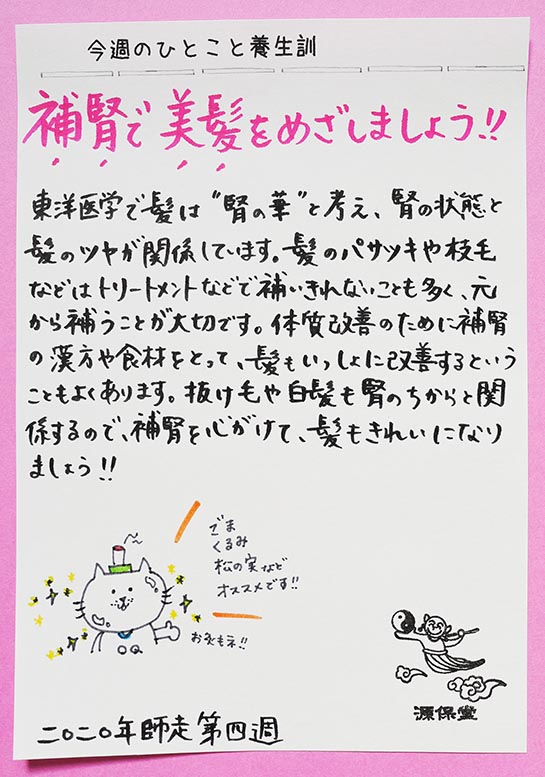 今週のひとこと養生訓
補腎で美髪をめざしましょう!!
東洋医学で髪は"腎の華"と考え、腎の状態と
髪のツヤが関係しています。髪のパサツキや枝毛
などはトリートメントなどで補いきれないことも多く、元
から補うことが大切です。体質改善のために補腎
の漢方や食材をとって、髪もいっしょに改善するという
こともよくあります。抜け毛や白髪も腎のちからと関
係するので、補腎を心がけて、髪もきれいになり
ましょう!!
ごま
くるみ
松の実など
オススメです!!
お灸もネ!!
源保堂
二〇二〇年師走第四週